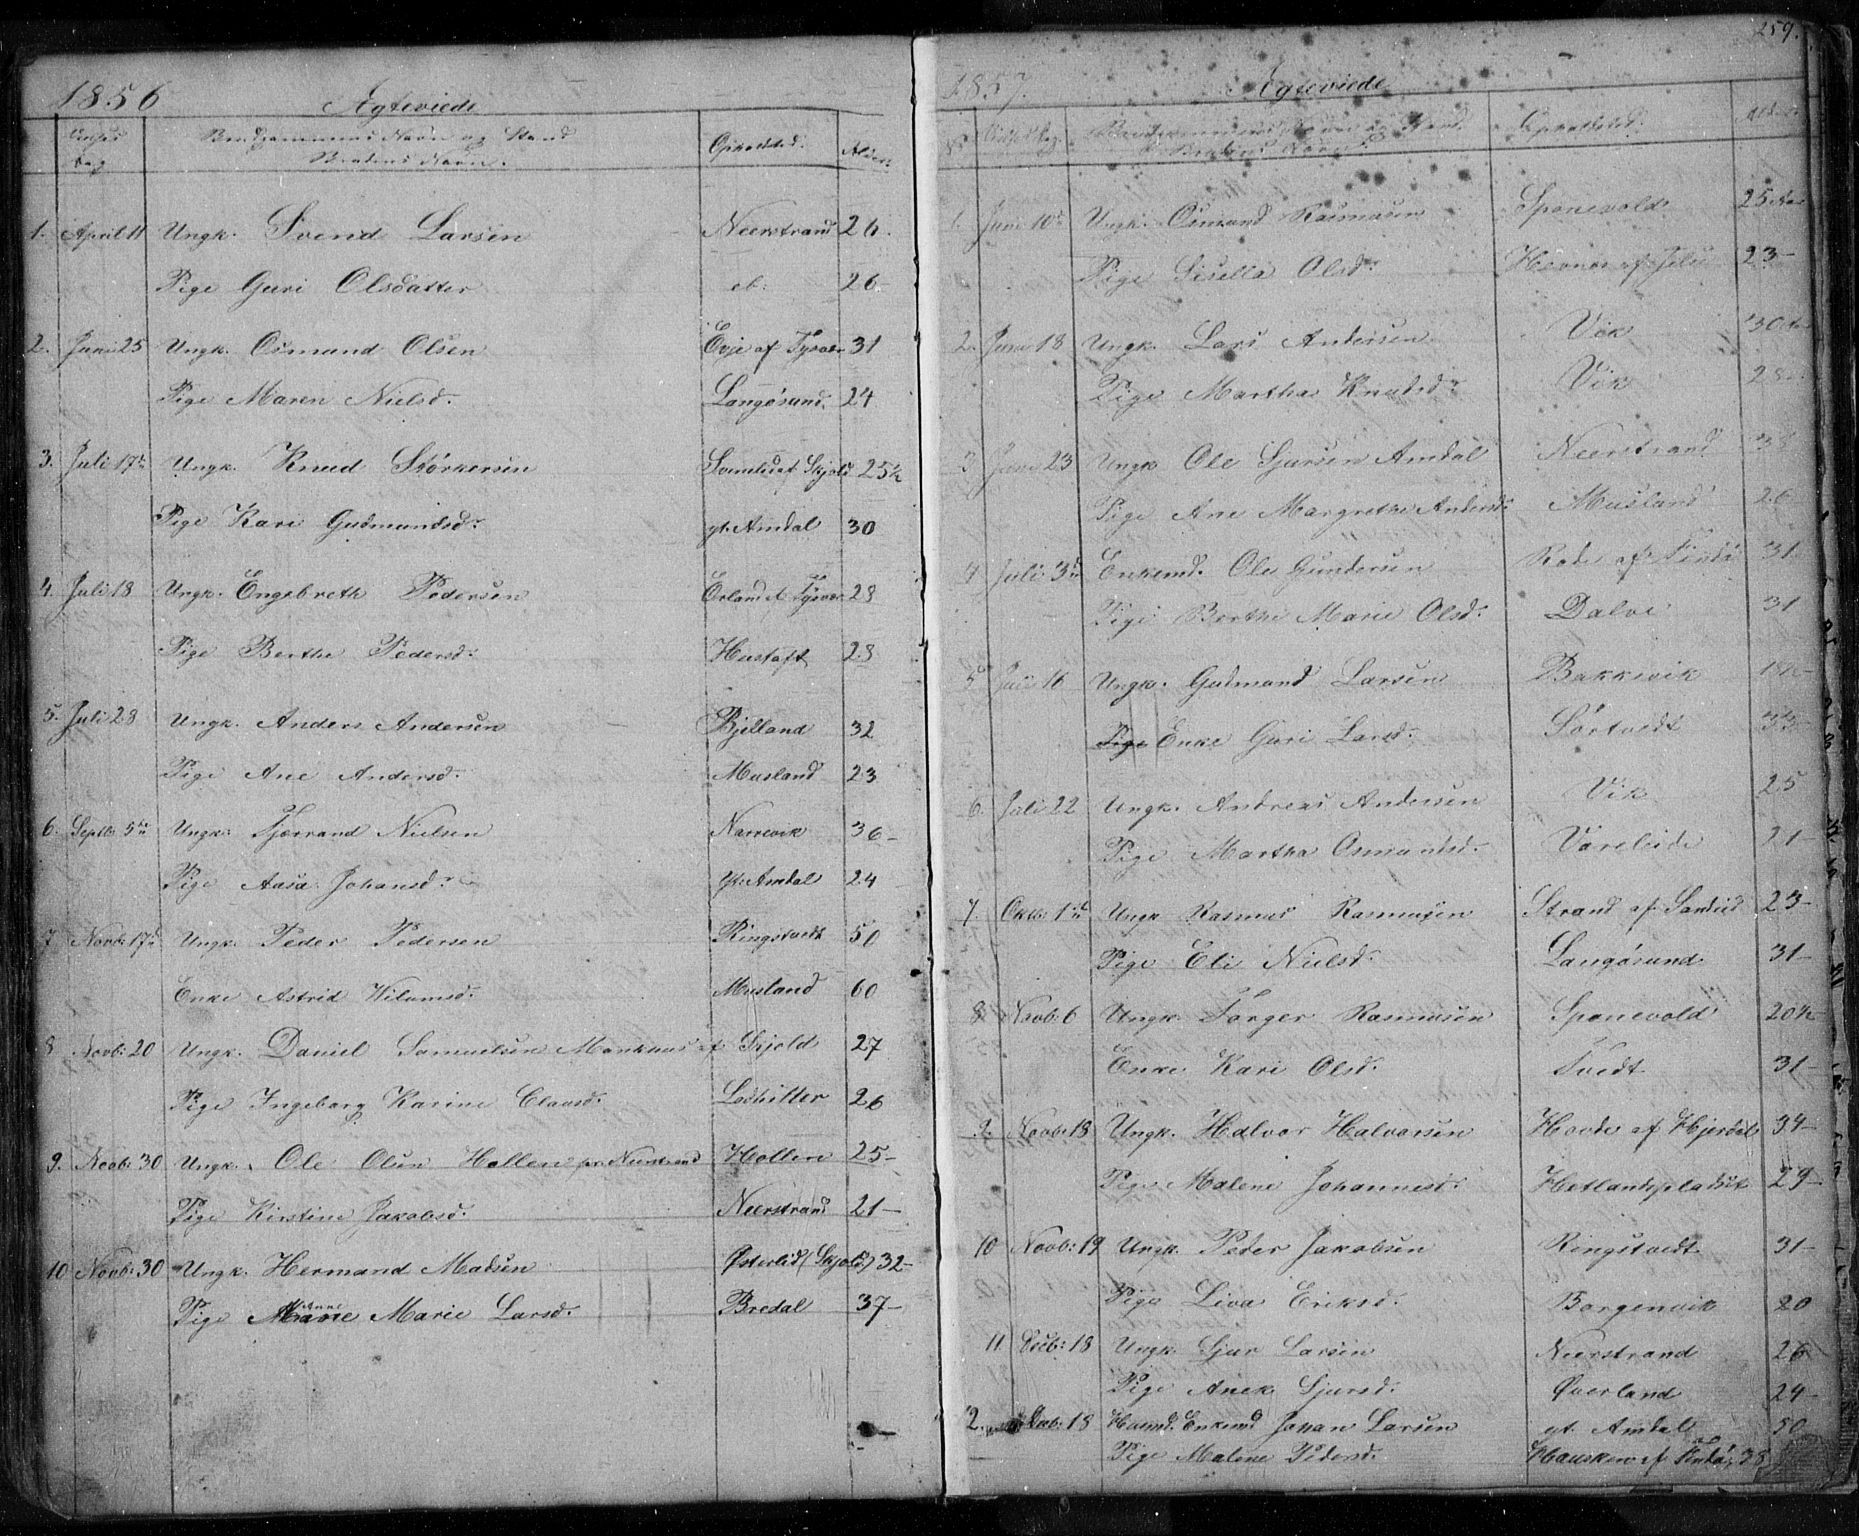 1856
Ægteviede
Vielses Dag
Brudgommens Navn og Stand
Brudens Navn.
Opholdsted.
Alder.
1. April 11 Ungk. Svend Larsen Neerstrand 26.
Pige Guri Olsdatter 26
2. Juni 25 Ungk. Osmund Olsen Evje af Tysvær 31
Pige Maren Nielsd. Langøsund. 24
3. Juli 17de Ungk. Knud Störkersen af Skjold 25½
Pige Kari Gudmundsd. yt. Amdal 30
4. Juli 18 Ungk. Engebreth Pedersen Erland af Tysvær 28
Pige Berthe Pedersd. Hustoft 28
5. Juli 28 Ungk. Anders Andersen Bjelland 32
Pige Ane Andersd. Musland 23
6. Septb: 5te Ungk: Tjærrand Nielsen Narrevik 36-
Pige Aasa Johansd. yt. Amdal 24
7 Novb: 17d Ungk. Peder Pedersen Ringstvedt 50
Enke Astrid Vilumsd. Musland 60
8 Novb: 20 Ungk. Daniel Samuelsen Markhus af Skjold 27
Pige Ingeborg Karine Clausd. Lodhilter 26
9. Novb: 30 Ungk. Ole Olsen Hollen pr. Neerstrand Hollen 25-
Pige Kirstine Jakobsd. Neerstrand 21-
10 Novb: 30 Ungk. Hermand Madsen Østerlid (Skjold) 32-
Anne
Pige Marie Larsd. Bredal 37-
259.
1857.
Ægteviede
No Vielsesdag Brudgommens Navn og Stand. Opholdsted. Alder.
Brudens Navn.
1. Juni 10de Ungk. Osmund Rasmusen Sponevold 25 Aar
Pige Sisella Olsd. af Jelse 23-
2. Juni 18 Ungk. Lars Andersen Vik 30
Pige Martha Knudsd. Vik 28
3 Juni 23 Ungk. Ole Sjursen Amdal Neerstrand 38
Pige Ane Margrethe Andersd. Musland 26
4 Juli 3de Enkemd. Ole Gundersen af Findö 31
Pige Berthe Marie Olsd. Dalve 31
5 Juli 16 Ungk. Gudmund Larsen Bakkevik
Pige Enke Guri Larsd. Sörtvedt 33
6. Juli 22 Ungk. Andreas Andersen Vik 25
Pige Martha Osmundsd. Vareleide 21-
7 Oktb: 1ste Ungk. Rasmus Rasmusen Strand af Sandeid 23-
Pige Eli Nielsd. Langøsund. 31-
8 Novb: 6 Ungk. Torger Rasmusen Sponevold 20½
Enke Kari Olsd. Tvedt 31-
9. Novb: 18 Ungk. Halvor Halvorsen Hovde af Hjerdal 34-
Pige Malene Johannesd. Hetlandspladset 29-
10 Novb: 19 Ungk. Peder Jakobsen Ringstvedt 31-
Pige Liva Eriksd. Borgenvik 20
11 Decb: 18 Ungk. Sjur Larsen Neerstrand 26
Pige Anek Sjursd. Øverland 24
12. Decb: 18 Huusmd. Enkemd Johan Larsen yt. Amdal 50
Pige Malene Pedersd. Hausken af Findö 38